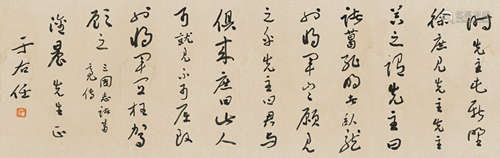 時先主屯新野
徐庶見先主先主
器之謂先主曰
諸葛孔明者臥龍
也將軍豈願見
之乎先主曰君與
俱來庶曰此人
可就見不可屈致
也將軍宜枉駕
顧之
三國志諸葛
亮傳
晨先生正
于右任